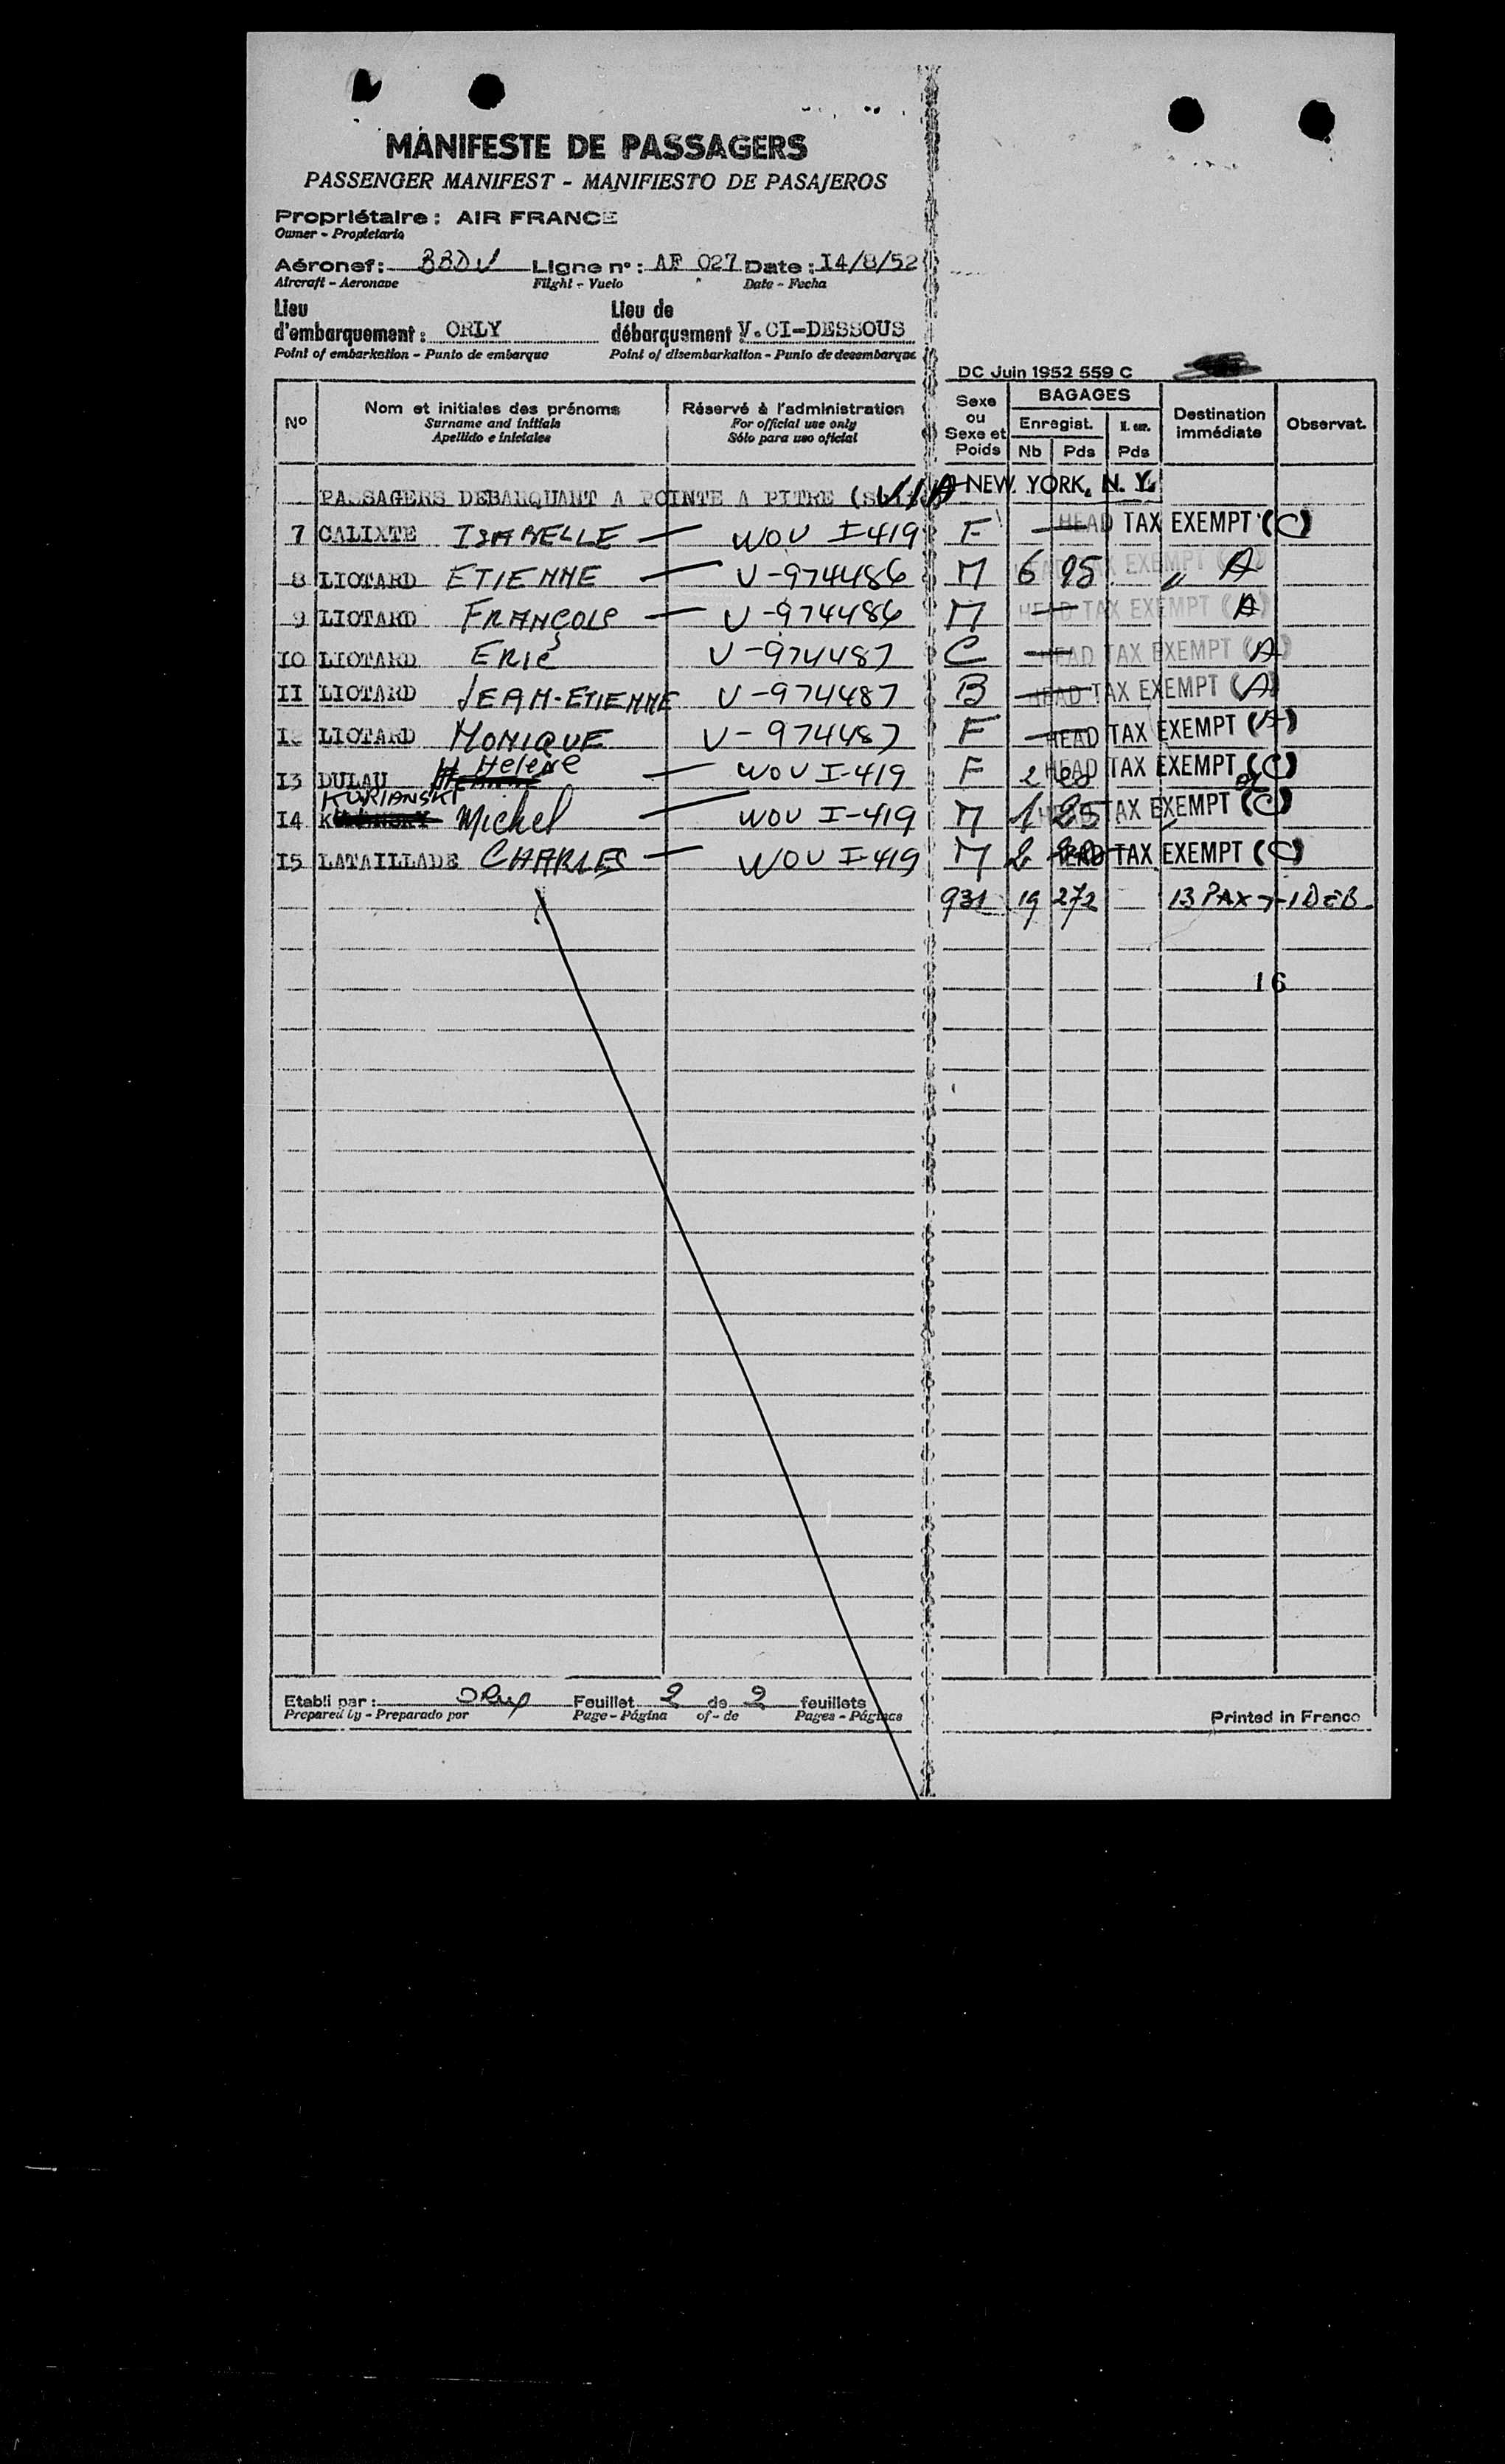 MANIFESTE DE PASSAGERS
PASSENGER MANIFEST - MANIFIESTO DE PASAJEROS
Propriétaire : AIR FRANCE
Owner - Propietario
Aéronef : BBDU Ligne n° : AF 027 Date : I4/8/52
Aircraft - Aeronave Flight - Vuelo Date - Fecha
Lieu d'embarquement : ORLY Lieu de débarquement V.CI-DESSOUS
Point of embarkation - Punto de embarque Point of disembarkation - Punto de desembarque
DC Juin 1952 559 C
N° Nom et initiales des prénoms Réservé à l'administration Sexe ou Sexe et Poids BAGAGES Destination immédiate Observat.
Surname and initials For official use only Enregist.
Apellido e iniciales Sólo para uso oficial Nb Pds Pds
PASSAGERS DEBARQUANT A POINTE A PITRE VIA NEW YORK, N. Y.
7 CALIXTE ISABELLE — WOV I-419 F — HEAD TAX EXEMPT (C)
8 LIOTARD ETIENNE — V-974486 M 6 95 HEAD TAX EXEMPT " A
9 LIOTARD FRANÇOIS — V-974486 M — HEAD TAX EXEMPT (A)
IO LIOTARD ERIC V-974487 C — HEAD TAX EXEMPT (A)
II LIOTARD JEAN-ETIENNE V-974487 B — HEAD TAX EXEMPT (A)
I2 LIOTARD MONIQUE V-974487 F — HEAD TAX EXEMPT (A)
I3 DULAU Helene — WOV I-419 F 2 HEAD TAX EXEMPT (C)
KURIANSKI
I4 Michel — WOV I-419 M 1 25 HEAD TAX EXEMPT (C)
I5 LATAILLADE CHARLES — WOV I-419 M 2 HEAD TAX EXEMPT (C)
931 19 272 — 13 PAX + 1 DEB
16
Etabli par : Feuillet 2 de 2 feuillets
Prepared by - Preparado por Page - Página of - de Pages - Páginas
Printed in France